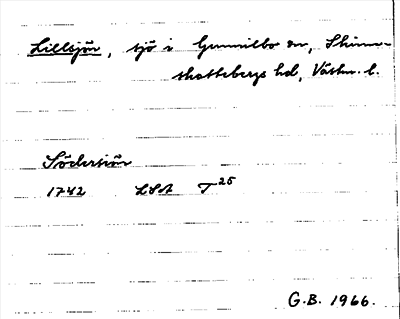 Lillsjön, sjö i Gunnilbo sn, Skinn-
skattebergs hd, Västm. l.
Södersjön
1742 LSA T25
G.B. 1966.